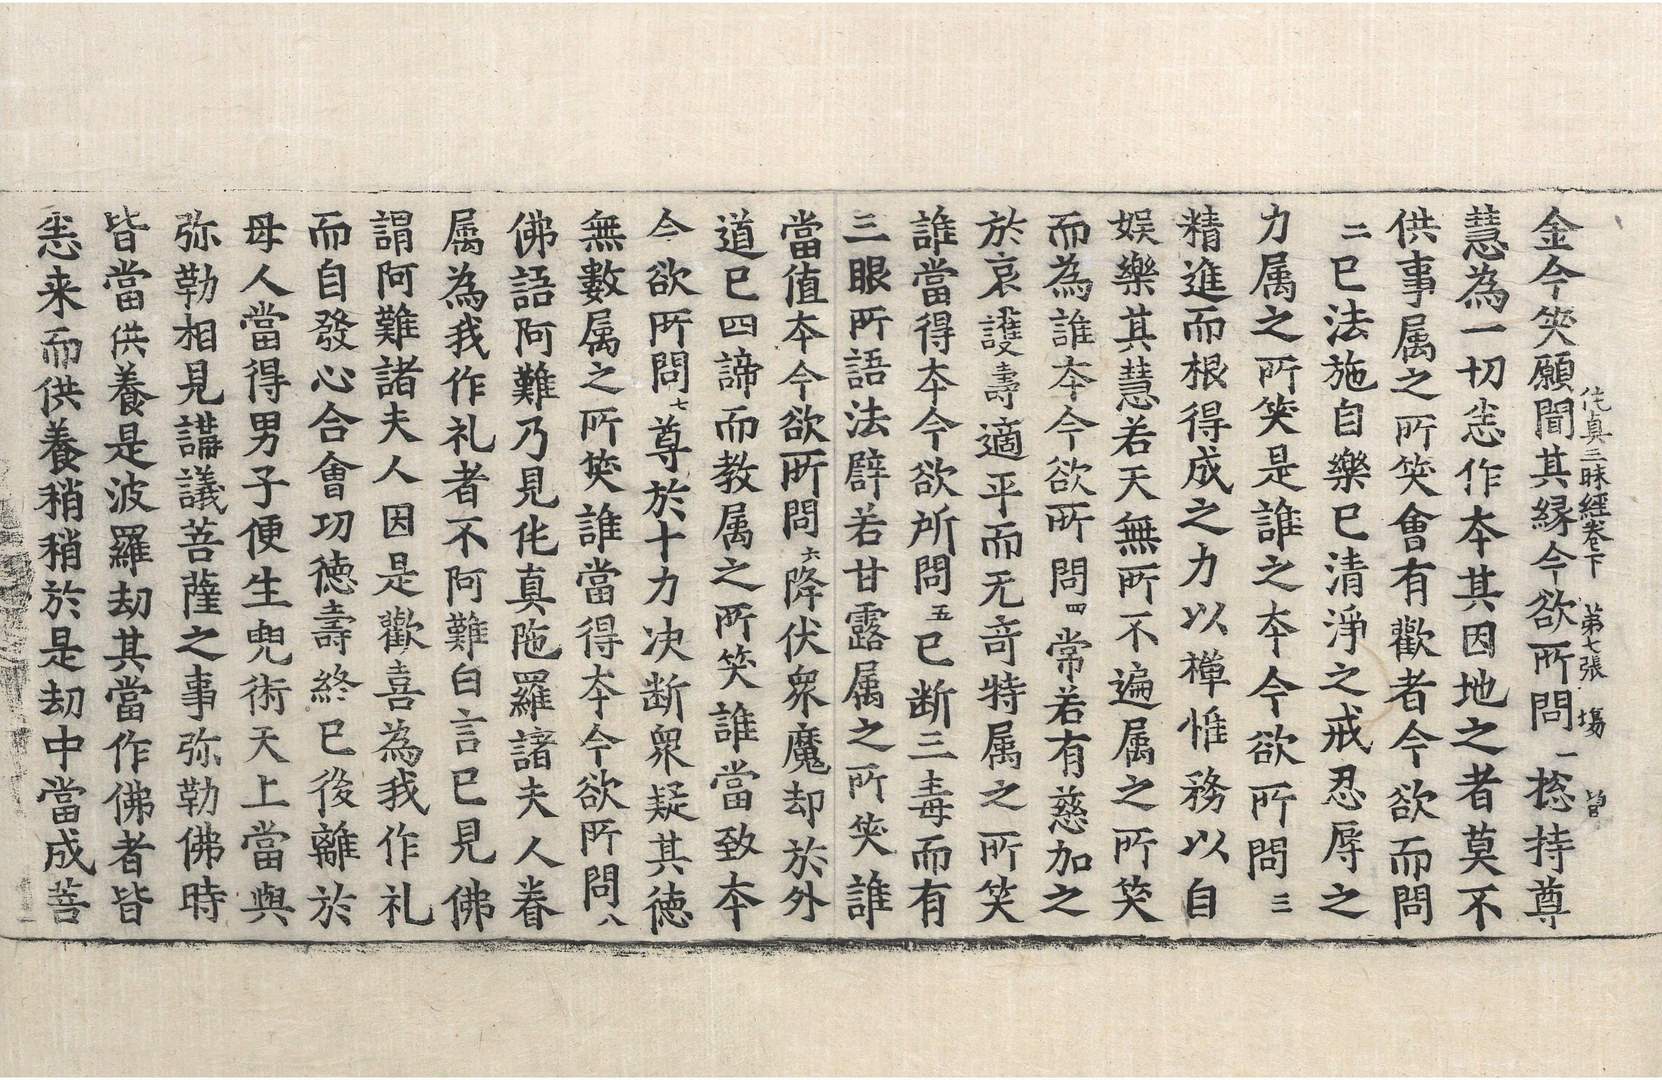 侘真三昧經卷下 第七張 塲
金今笑願聞其縁今欲所問一捴持尊
慧為一切恙作本其因地之者莫不
供事属之所笑會有歡者今欲而問
二已法施自樂已清淨之戒忍辱之
力属之所笑是誰之本今欲所問三
精進而根得成之力以襌惟務以自
娛樂其慧若天無所不遍属之所笑
而為誰本今欲所問四常若有慈加之
於哀護壽適平而无竒特属之所笑
誰當得本今欲所問五已断三毒而有
三眼所語法辟若甘露属之所笑誰
當值本今欲所問六降伏衆魔却於外
道已四諦而教属之所笑誰當致本
今欲所問七尊於十力决断衆疑其德
無數属之所笑誰當得本今欲所問八
佛語阿難乃見侘真陁羅諸夫人眷
属為我作礼者不阿難白言已見佛
謂阿難諸夫人因是歡喜為我作礼
而自發心合會功德壽終已後離於
母人當得男子便生兜術天上當與
弥勒相見講議菩薩之事弥勒佛時
皆當供養是波羅劫其當作佛者皆
恙来而供養稍稍於是劫中當成菩